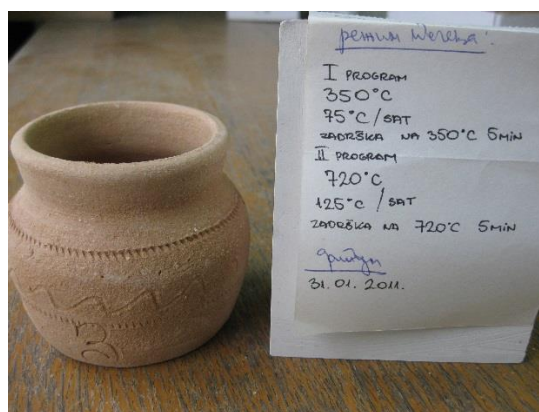 режим печења:
I PROGRAM
350°C
75°C/SAT
ZADRŠKA NA 350°C 5MIN
II PROGRAM
720°C
125°C/SAT
ZADRŠKA NA 720°C 5MIN
датум
31.01.2011.